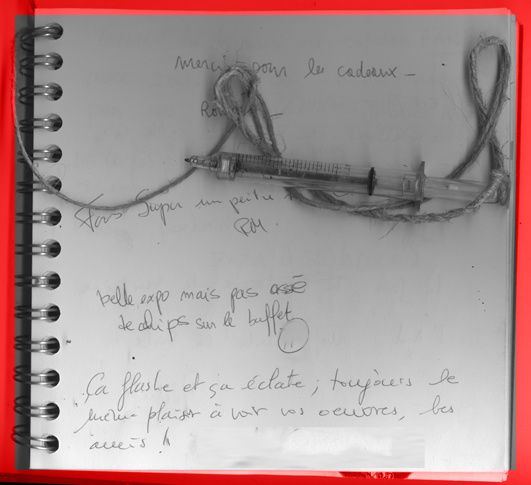 merci pour les cadeaux -
Tous Super un peitre
belle expo mais pas assé
de chips sur le buffet
Ça flashe et ça éclate, toujours le
même plaisir à voir vos oeuvres, les
amis !!